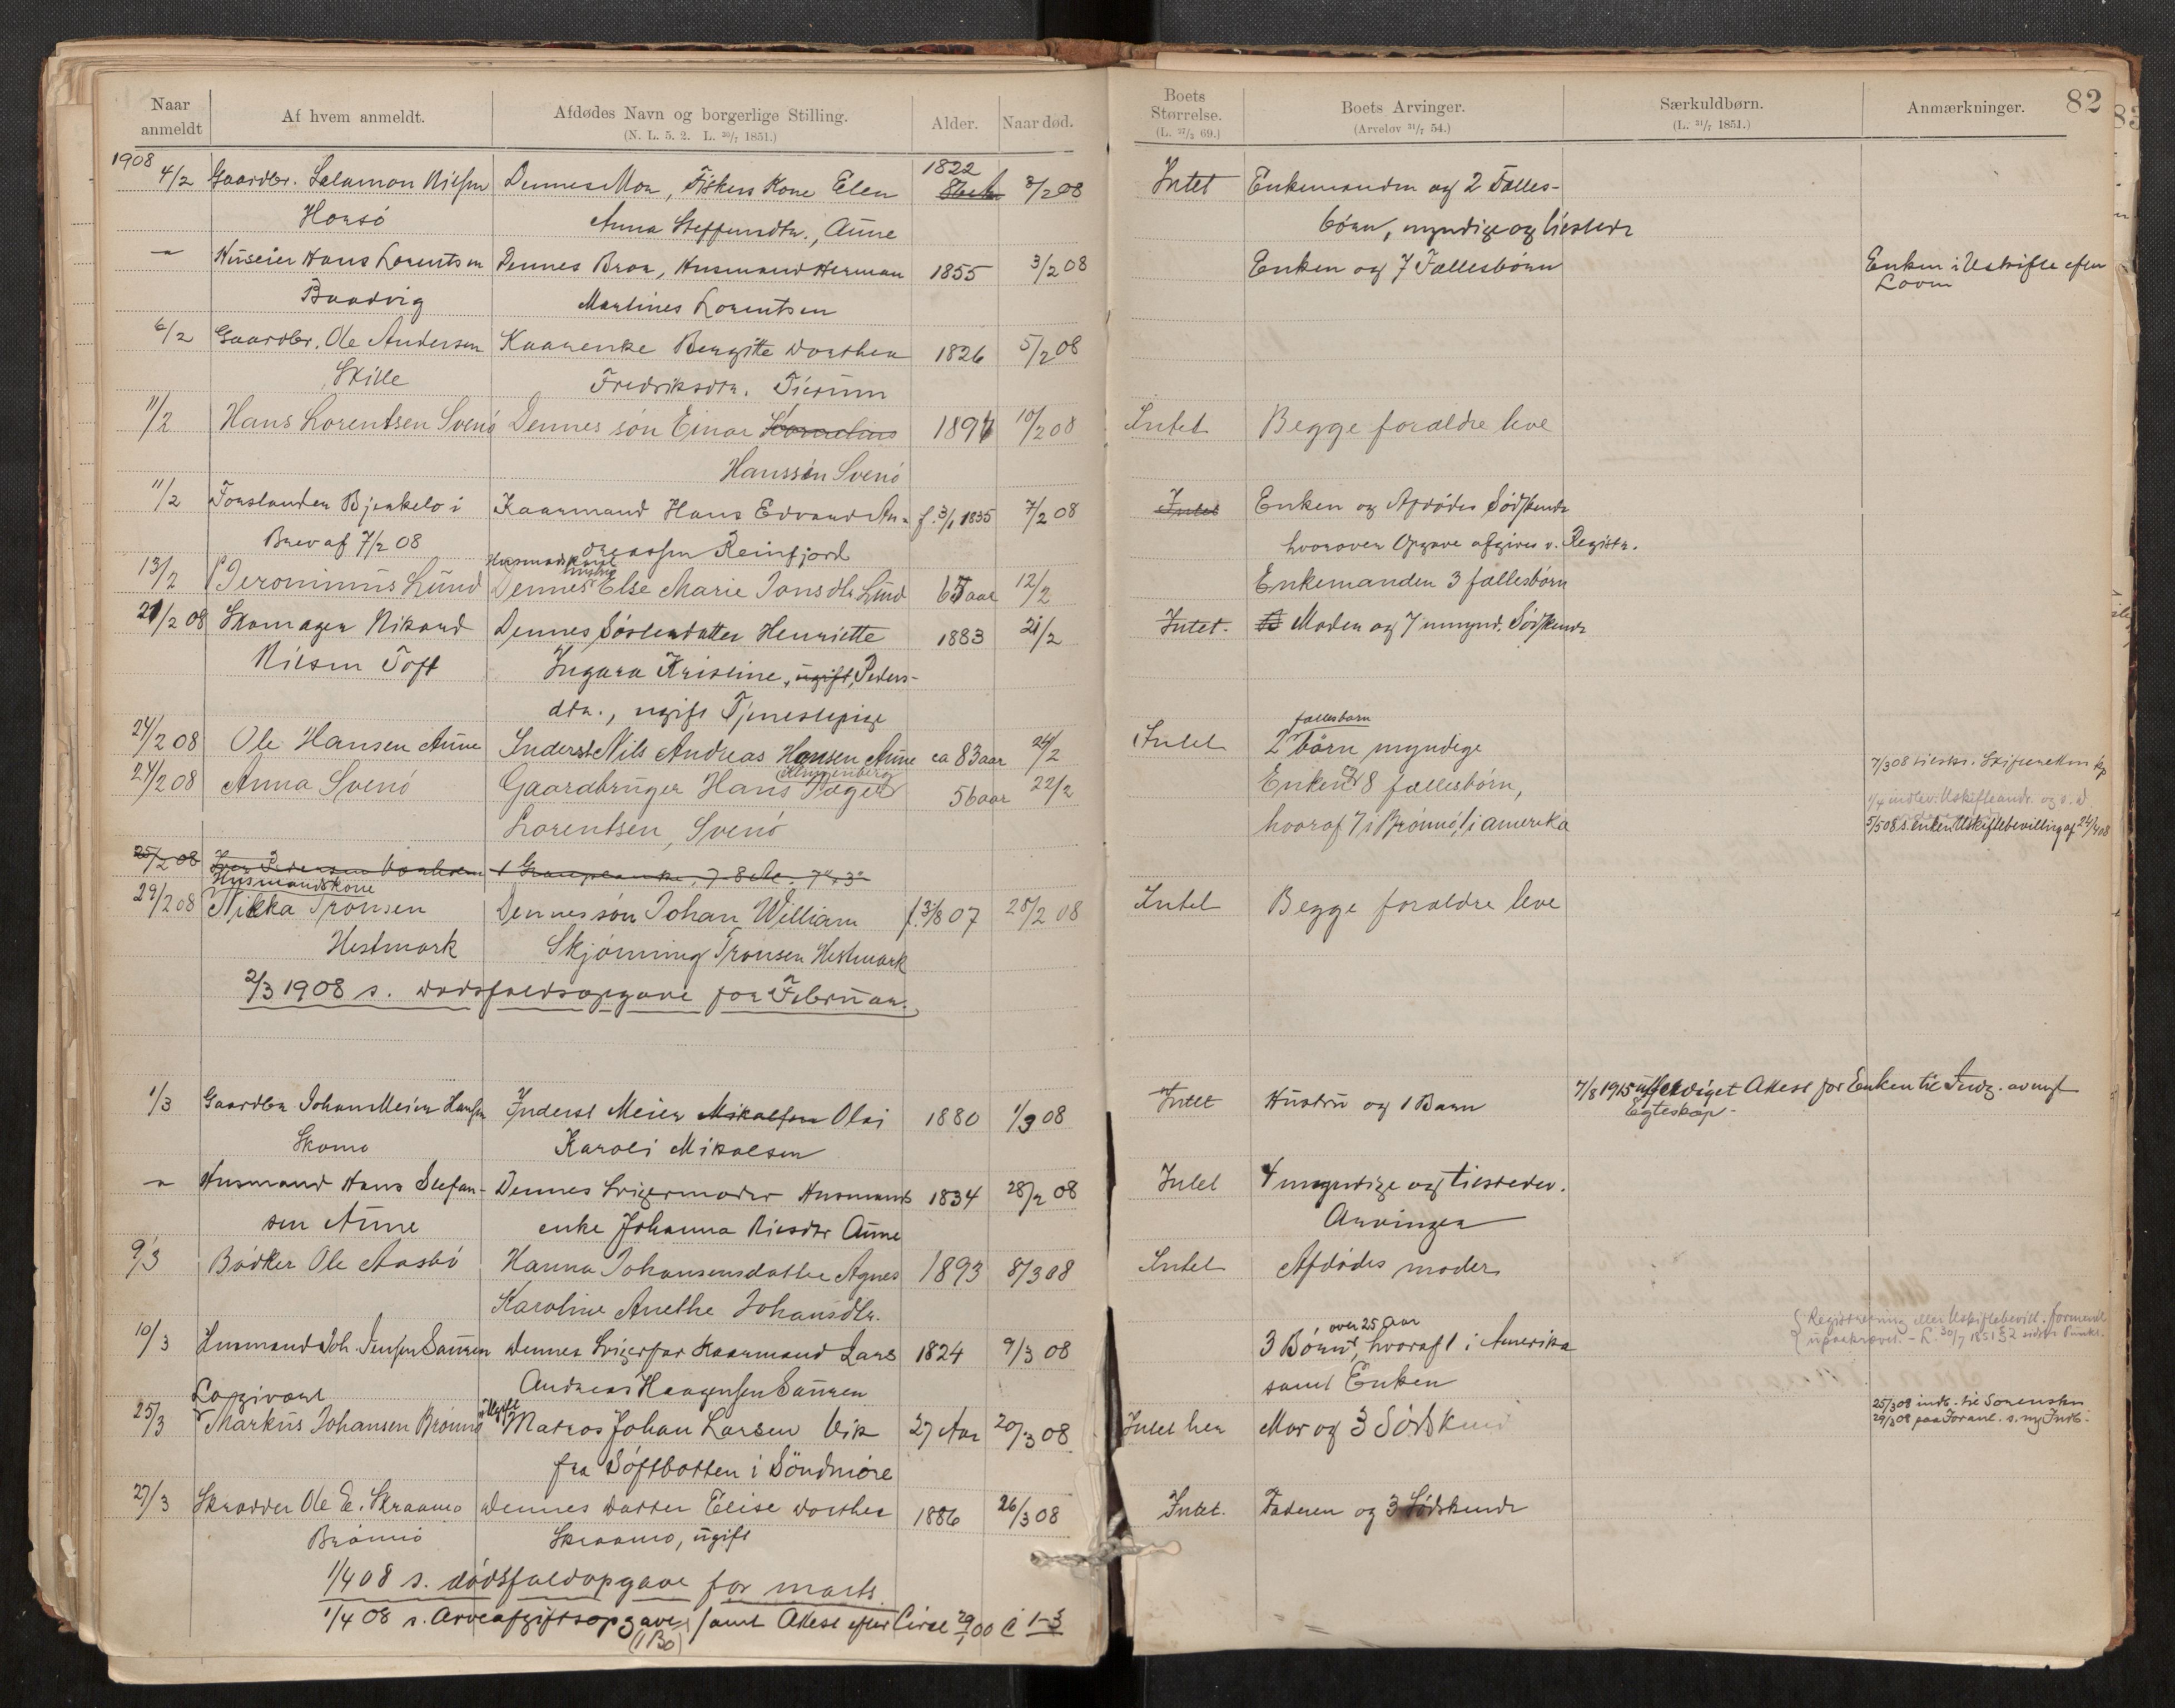 Naar anmeldt
Af hvem anmeldt.
Afdødes Navn og borgerlige Stilling.
(N. L. 5. 2. L. 30/7 1851.)
Alder.
Naar død.
Boets Størrelse.
(L. 27/3 69.)
Boets Arvinger.
(Arvelov 31/7 54.)
Særkuldbørn.
(L. 31/7 1851.)
Anmærkninger.
82
1908
4/2 Gaardbr. Salamon Nilsen Dennes Mor, Fiskers Kone Elen 1822 3/2 08 Intet Enkemanden og 2 Fælles-
Horsø Anna Steffensdtr., Aune børn, myndige og tilstede
" Huseier Hans Lorentsen Dennes Bror, Husmand Herman 1855 3/2 08 Enken og 7 Fællesbørn Enken i Uskifte efter
Baadvig Martines Lorentsen Loven
6/2 Gaardbr. Ole Andersen Kaarenke Bergitte Dorthea 1826 5/2 08
Skille Fredriksdtr. Tilrum
11/2 Hans Lorentsen Svenø Dennes søn Einar Kornelius 1897 10/2 08 Intet Begge forældre leve
Hanssøn Svenø
11/2 Forstander Bjerkelo i Kaarmand Hans Edvard An- f. 3/1 1835 7/2 08 Intet Enken og Afdødes Sødskende
Brev af 7/2 08 dreassen Reinfjord hvorover Opgave afgives v. Registr.
13/2 Jeronimus Lund Dennes hustru Else Marie Jonsdtr Lund 65 aar 12/2 Enkemanden 3 fællesbørn
21/2 08 Skomager Rikard Dennes Søsterdatter Henriette 1883 21/2 Intet. Moder og 7 umynd. Sødskende
Nilsen Toft Ingara Kristine, ugift, Peders-
dtr., ugift Tjenestepige
fællesbarn
24/2 08 Ole Hansen Aune Inderst Nils Andreas Hansen Aune ca 83 aar 24/2 Intet 2 børn myndige
7/3 08 tilskr. Skifteretten
Klingenberg
24/2 08 Anna Svenø Gaardbruger Hans Jæger 56 aar 22/2 Enken og 8 fællesbørn,
1/4 indlev. Uskifteandr. og s. d.
Lorentsen, Svenø hvoraf 7 i Brønnø, 1 i Amerika
5/5 08 s. enken Uskiftebevilling af 24/4 08
25/2 08
Husmandskone
29/2 08 Nikka Tronsen Dennes søn Johan William f. 3/8 07 28/2 08 Intet Begge forældre leve
Hestmark Skjønning Tronsen Hestmark
2/3 1908 s. dødsfaldsopgave for Februar.
1/3 Gaardbr Johan Meier Hansen Inderst Meier Mikalsen Olai 1880 1/3 08 Intet Hustru og 1 Barn 7/8 1915 utferdiget Attest for Enken til Indg. av nyt
Skomo Karoli Mikalsen Egteskap.
" Husmand Hans Stefan- Dennes Svigermoder Husmands 1834 28/2 08 Intet 4 myndige og tilstedev.
sen Aune enke Johanna Nilsdtr Aune Arvinger
9/3 Bødker Ole Aasbø Hanna Johansensdatter Agnes 1893 8/3 08 Intet Afdødes moder
Karoline Anethe Johansdtr.
Registrering eller Uskiftebevill. formentl
over 25 Aar
10/3 Husmand Joh. Jensen Sauren Dennes Svigerfar Kaarmand Lars 1824 9/3 08 3 Børn, hvoraf 1 i Amerika upaakrævet. - L. 30/7 1851 § 2 sidste Punkt.
Andreas Haagensen Sauren samt Enken
Logivært
25/3 Markus Johansen Brønnø Ugift Matros Johan Larsen Vik 27 Aar 20/3 08 Intet her Mor og 3 Sødsken
25/3 08 indb. til Sorenskr
29/3 08 paa Foranl. s. ny Indb.
fra Søftbotten i Søndmøre
27/3 Skrædder Ole E. Skraamo Dennes datter Elise Dorthea 1886 26/3 08 Intet. Faderen og 3 Sødskende
Brønnø Skraamo, ugift
1/4 08 s. dødsfaldopgave for marts.
1/4 08 s. Arveafgiftsopgave samt Attest efter Circl 29/1 00
(1 Bo)